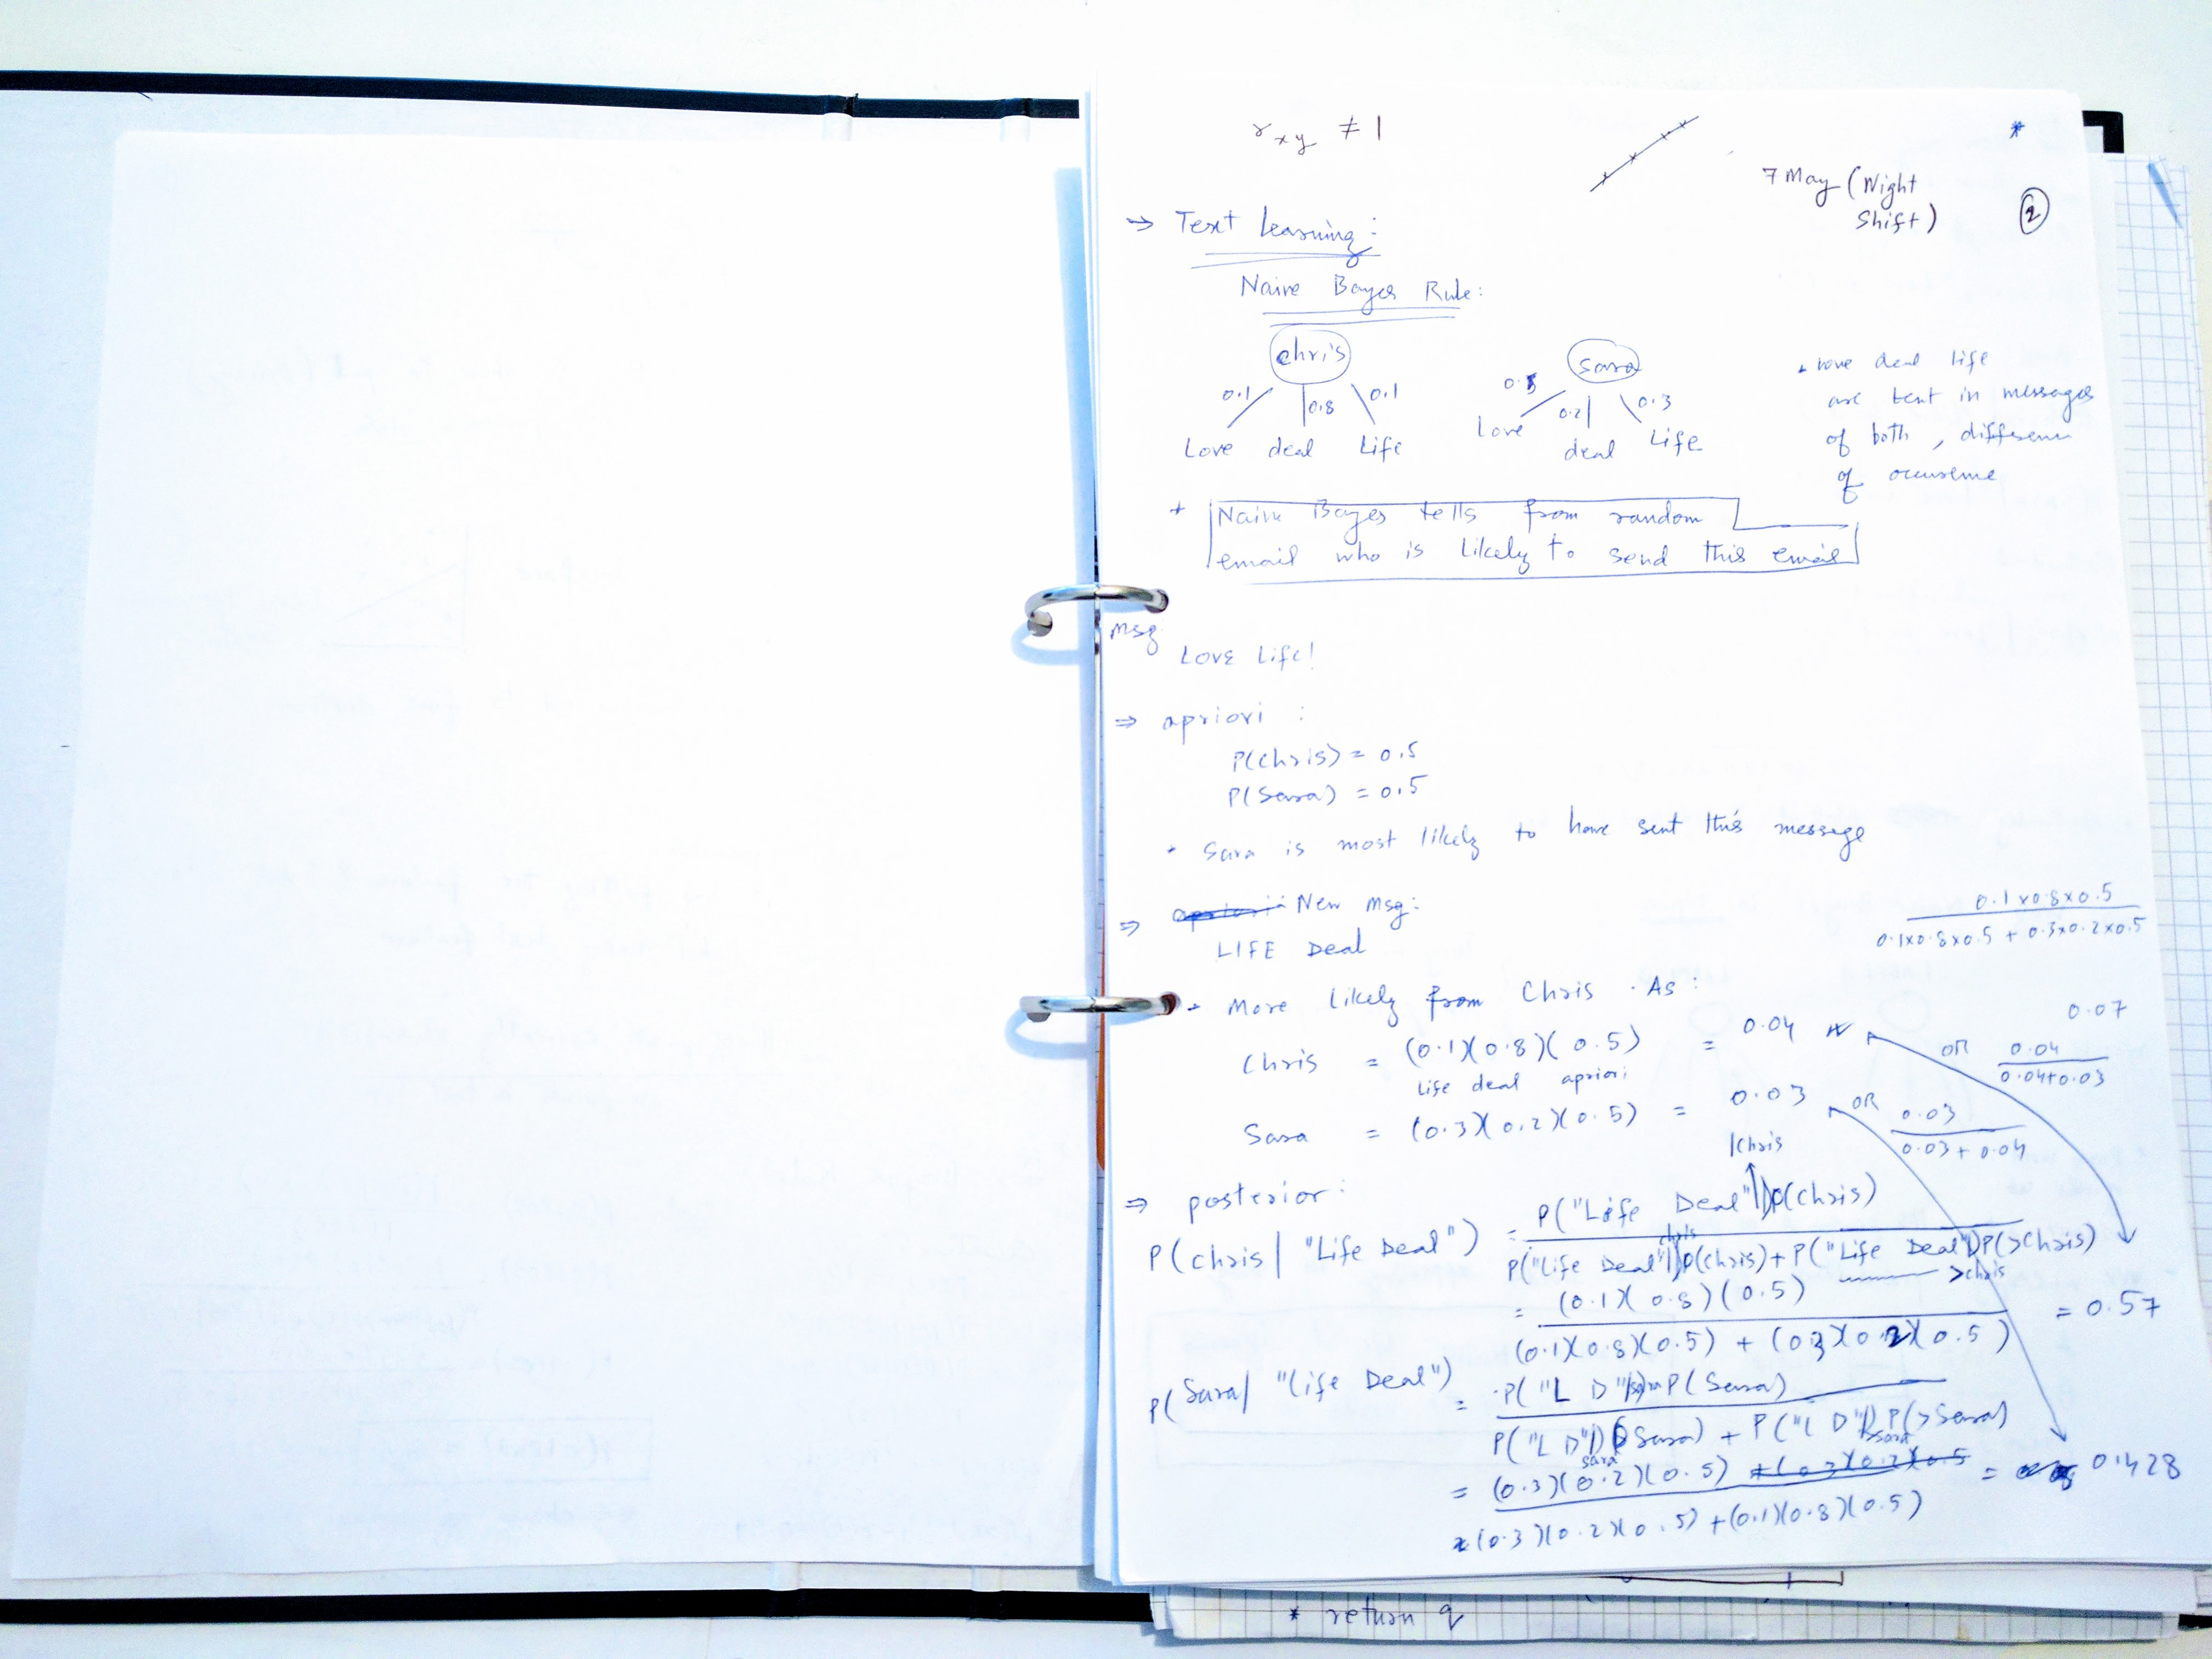 r_xy ≠ 1
*
7 May (Night
Shift)
2
⇒ Text Learning:
Naive Bayes Rule:
chris
0.1 0.8 0.1
Love deal Life
Sara
0.5 0.2 0.3
Love deal Life
love deal life
are text in messages
of both,
of
+ Naive Bayes tells from random
email who is likely to send this email
msg
LOVE Life!
⇒ apriori :
P(Chris) = 0.5
P(Sara) = 0.5
* Sara is most likely to have sent this message
⇒ New Msg:
LIFE Deal
0.1x0.8x0.5
0.1x0.8x0.5 + 0.3x0.2x0.5
* More Likely from Chris . As :
Chris = (0.1)(0.8)(0.5) = 0.04
Life deal apriori
OR 0.04
0.04+0.03
0.07
Sara = (0.3)(0.2)(0.5) = 0.03
OR 0.03
0.03+0.04
|Chris
⇒ posterior:
P(chris | "Life Deal") = P("Life Deal"|)P(Chris)
P("Life Deal"|chris)P(Chris) + P("Life Deal")P(>Chris)
>chris
= (0.1)(0.8)(0.5)
(0.1)(0.8)(0.5) + (0.3)(0.2)(0.5)
= 0.57
P(Sara| "Life Deal") = P("L D"|Sara)P(Sara)
P("L D"|)P(Sara) + P("L D"|)P(>Sara)
sara >sara
= (0.3)(0.2)(0.5) +(0.3)(0.2)(0.5 = 0.428
(0.3)(0.2)(0.5) + (0.1)(0.8)(0.5)
* return q